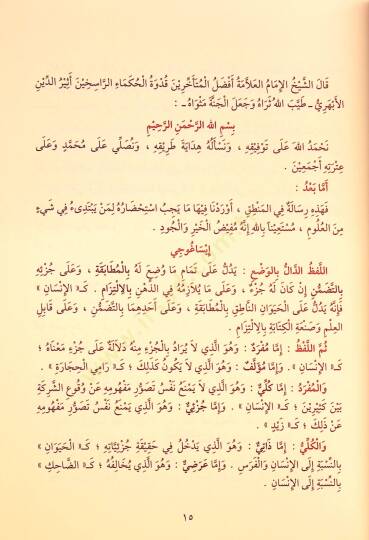 قَالَ الشَّيْخُ الإِمَامُ العَلاَّمَةُ أَفْضَلُ الْمُتَأَخِّرِيْنَ قُدْوَةُ الْحُكَمَاءِ الرَّاسِخِيْنَ أَثِيْرُ الدِّيْنِ
الأَبْهَرِيُّ ـ طَيَّبَ اللهُ ثَرَاهُ وَجَعَلَ الْجَنَّةَ مَثْوَاهُ ـ :
بِسْمِ اللهِ الرَّحْمَنِ الرَّحِيْمِ
نَحْمَدُ اللهَ عَلَى تَوْفِيْقِهِ ، وَنَسْأَلُهُ هِدَايَةَ طَرِيْقِهِ ، وَنُصَلِّي عَلَى مُحَمَّدٍ وَعَلَى
عِتْرَتِهِ أَجْمَعِيْنَ .
أَمَّا بَعْدُ :
فَهَذِهِ رِسَالَةٌ فِي الْمَنْطِقِ ، أَوْرَدْنَا فِيْهَا مَا يَجِبُ اسْتِحْضَارُهُ لِمَنْ يَبْتَدِىءُ فِي شَيءٍ
مِنَ العُلُومِ ، مُسْتَعِيْناً بِاللهِ إِنَّهُ مُفِيْضُ الْخَيْرِ وَالْجُودِ .
إِيْسَاغُوجِي
اللَّفْظُ الدَّالُّ بِالوَضْعِ : يَدُلُّ عَلَى تَمَامِ مَا وُضِعَ لَهُ بِالْمُطَابَقَةِ ، وَعَلَى جُزْئِهِ
بِالتَّضَمُّنِ إِنْ كَانَ لَهُ جُزْءٌ ، وَعَلَى مَا يُلاَزِمُهُ فِي الذِّهْنِ بِالاِلْتِزَامِ . كَـ« الإِنْسَانِ »
فَإِنَّهُ يَدُلُّ عَلَى الْحَيَوَانِ النَّاطِقِ بِالْمُطَابَقَةِ ، وَعَلَى أَحَدِهِمَا بِالتَّضَمُّنِ ، وَعَلَى قَابِلِ
العِلْمِ وَصَنْعَةِ الْكِتَابَةِ بِالاِلْتِزَامِ .
ثُمَّ اللَّفْظُ : إِمَّا مُفْرَدٌ : وَهُوَ الَّذِي لاَ يُرَادُ بِالْجُزْءِ مِنْهُ دَلاَلَةٌ عَلَى جُزْءِ مَعْنَاهُ ؛
كَـ« الإِنْسَانِ » . وَإِمَّا مُؤَلَّفٌ : وَهُوَ الَّذِي لاَ يَكُونُ كَذَلِكَ ؛ كَـ« رَامِي الْحِجَارَةِ » .
وَالْمُفْرَدُ : إِمَّا كُلِّيٌّ : وَهُوَ الَّذِي لاَ يَمْنَعُ نَفْسُ تَصَوُّرِ مَفْهُومِهِ عَنْ وُقُوعِ الشَّرِكَةِ
بَيْنَ كَثِيْرِيْنَ ؛ كَـ« الإِنْسَانِ » . وَإِمَّا جُزْئِيٌّ : وَهُوَ الَّذِي يَمْنَعُ نَفْسُ تَصَوُّرِ مَفْهُومِهِ
عَنْ ذَلِكَ ؛ كَـ« زَيْدٍ » .
وَالْكُلِّيُّ : إِمَّا ذَاتِيٌّ : وَهُوَ الَّذِي يَدْخُلُ فِي حَقِيْقَةِ جُزْئِيَّاتِهِ ؛ كَـ« الْحَيَوَانِ »
بِالنِّسْبَةِ إِلَى الإِنْسَانِ وَالْفَرَسِ . وَإِمَّا عَرَضِيٌّ : وَهُوَ الَّذِي يُخَالِفُهُ ؛ كَـ« الضَّاحِكِ »
بِالنِّسْبَةِ إِلَى الإِنْسَانِ .
١٥